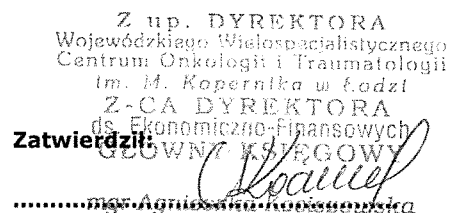 Z up. DYREKTORA
Wojewódzkiego Wielospecjalistycznego
Centrum Onkologii i Traumatologii
im. M. Kopernika w Łodzi
Z-CA DYREKTORA
ds. Ekonomiczno-Finansowych
Zatwierdził:
GŁÓWNY KSIĘGOWY
mgr Agnieszka